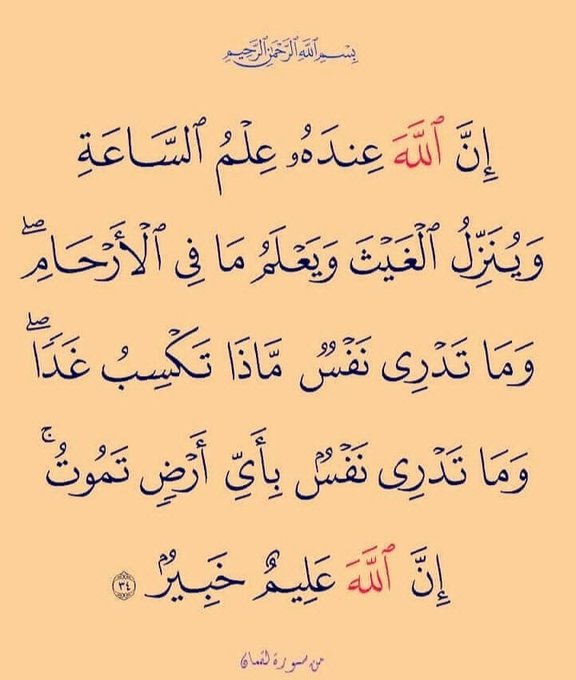 بِسْمِ اللَّهِ الرَّحْمَٰنِ الرَّحِيمِ
إِنَّ ٱللَّهَ عِندَهُۥ عِلْمُ ٱلسَّاعَةِ
وَيُنَزِّلُ ٱلْغَيْثَ وَيَعْلَمُ مَا فِى ٱلْأَرْحَامِۖ
وَمَا تَدْرِى نَفْسٌ مَّاذَا تَكْسِبُ غَدًاۖ
وَمَا تَدْرِى نَفْسٌۢ بِأَىِّ أَرْضٍ تَمُوتُۚ
إِنَّ ٱللَّهَ عَلِيمٌ خَبِيرٌۢ ٣٤
من سورة لقمان